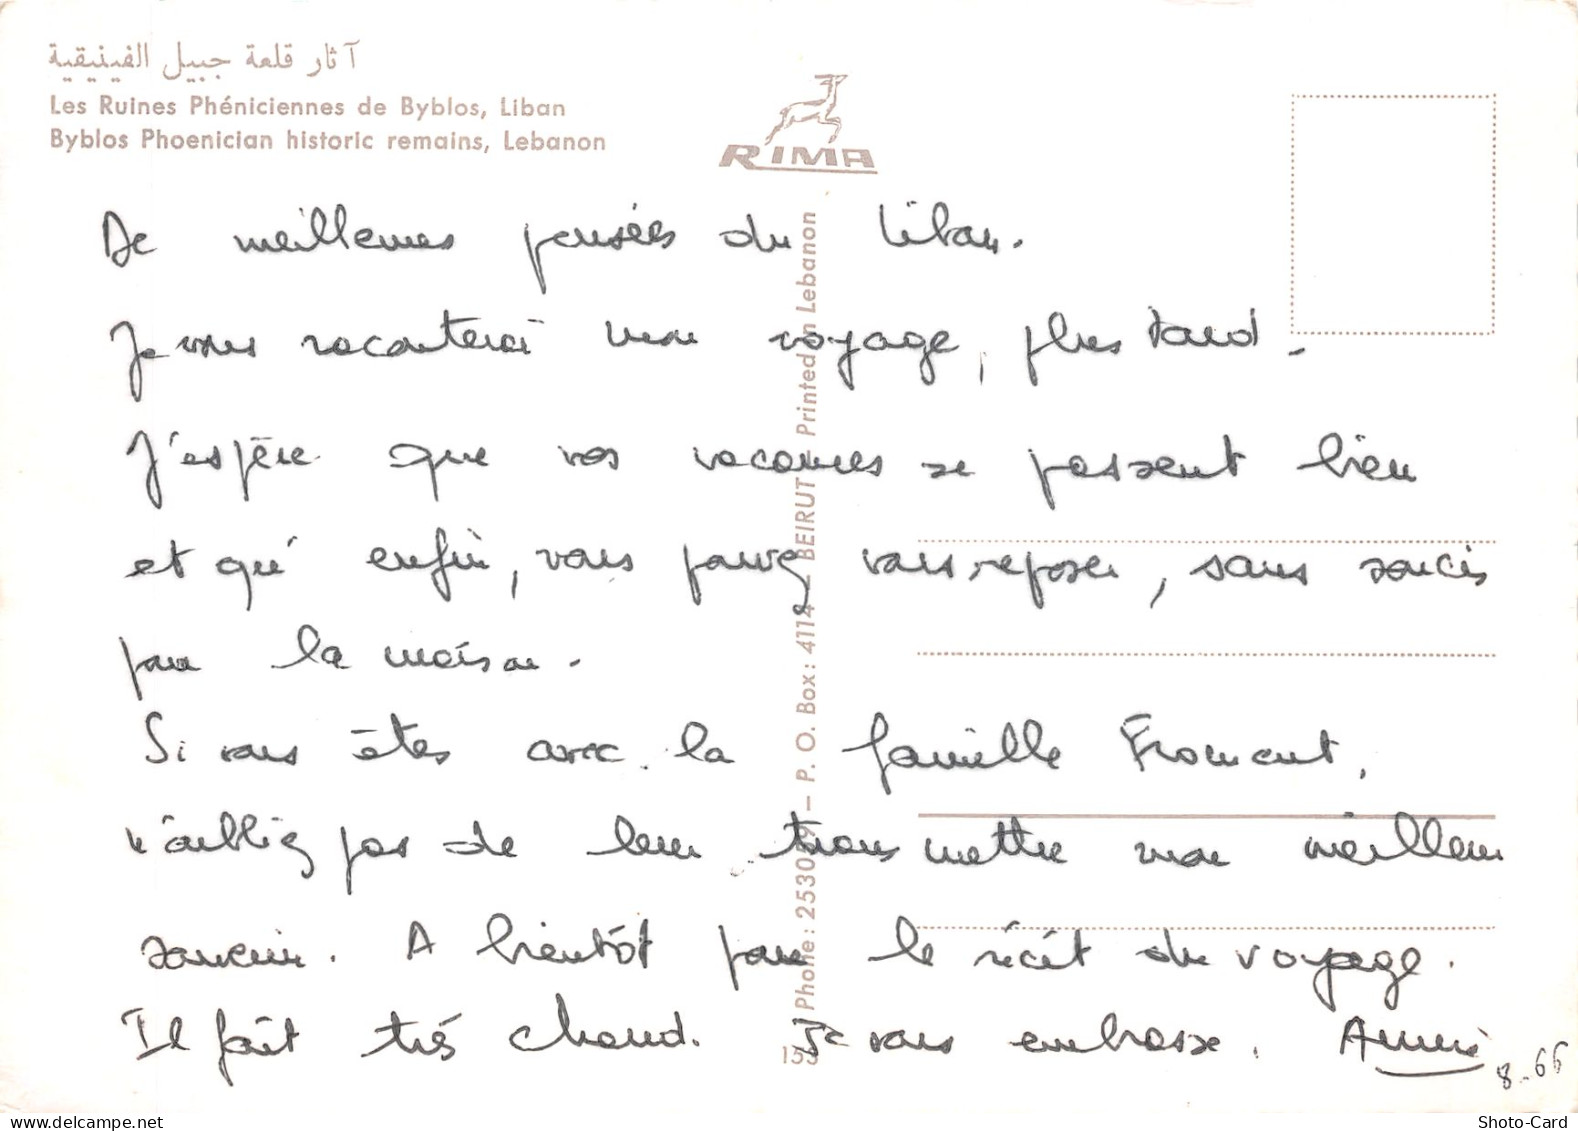 آثار قلعة جبيل الفينيقية
Les Ruines Phéniciennes de Byblos, Liban
Byblos Phoenician historic remains, Lebanon
RIMA
De meilleures pensées du Liban.
Je vous raconterai mon voyage, plus tard.
J'espère que vos vacances se passent bien
et qu'enfin, vous pouvez vous reposer, sans soucis
pour la maison.
Si vous êtes avec la famille Froment,
n'oubliez pas de leur transmettre mon meilleur
souvenir. A bientôt pour le récit du voyage.
Il fait très chaud. Je vous embrasse. Annie
8-66
155
Phone: 253059 — P. O. Box: 4114 — BEIRUT Printed in Lebanon
Shoto-Card